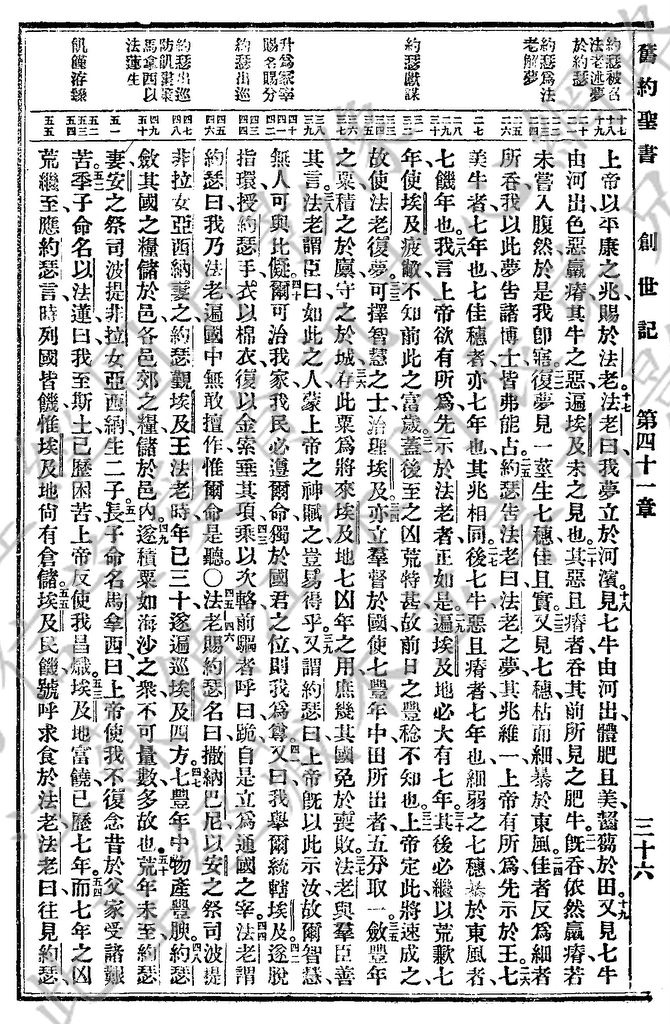 舊約聖書 創世記 第四十一章 三十六
約瑟被召
法老述夢
於約瑟
約瑟為法
老解夢
約瑟獻謀
升為冢宰
賜名賜分
約瑟出巡
約瑟出巡
防飢
馬拿西以
法蓮生
飢饉洊臻
上帝以平康之兆賜於法老。法老曰、我夢立於河濱、見七牛由河出、體肥且美、齧芻於田、又見七牛
由河出、色惡羸瘠、其牛之惡、遍埃及未之見也。其惡且瘠者、吞其前所見之肥牛、旣吞、依然羸瘠、若
未嘗入腹然、於是我卽寤。復夢見一莖生七穗、佳且實、又見七穗枯而細、暴於東風、佳者反爲細者
所吞、我以此夢告諸博士、皆弗能占。約瑟告法老曰、法老之夢、其兆維一、上帝有所爲、先示於王。七
美牛者、七年也、七佳穗者、亦七年也、其兆相同。後七牛惡且瘠者、七年也、細弱之七穗、暴於東風者、
七饑年也。我言上帝欲有所爲、先示於法老者、正如是。遍埃及地必大有七年、其後必繼以荒歉七
年、使埃及疲敝、不知前此之富歲。蓋後至之凶荒特甚、故前日之豐稔不知也。上帝定此、將速成之、
故使法老復夢。可擇智慧之士、治理埃及、亦立羣督於國、使七豐年中、田所出者、五分取一、斂豐年
之粟、積之於廩、守之於城、存此粟爲將來埃及地七凶年之用、庶幾其國免於喪敗。法老與羣臣善
其言。法老謂臣曰、如此之人、蒙上帝之神賦之、豈易得乎。又謂約瑟曰、上帝旣以此示汝、故爾智慧、
無人可與比儗。爾可治我家、我民必遵爾命、獨於國君之位、則我爲尊。又曰、我舉爾統轄埃及。遂脫
指環、授約瑟手、衣以棉衣、復以金索垂其項、乘以次輅、前驅者呼曰、跪、自是立爲通國之宰。法老謂
約瑟曰、我乃法老、遍國中無敢擅作、惟爾命是聽。〇法老賜約瑟名曰撒納巴尼、以安之祭司波提
非拉女亞西納妻之、約瑟觀埃及王法老時、年已三十、遂遍巡埃及四方。七豐年中、物產豐腴、約瑟
斂其國之糧、儲於邑、各邑郊之糧、儲於邑內。遂積粟如海沙之衆、不可量、數多故也。荒年未至、約瑟
妻安之祭司波提非拉女亞西納生二子。長子命名馬拿西、曰、上帝使我不復念昔於父家、受諸艱
苦。季子命名以法蓮、曰、我至斯土、已歷困苦、上帝反使我昌熾。埃及地富饒、已歷七年、而七年之凶
荒繼至、應約瑟言、時列國皆饑、惟埃及地尙有倉儲。埃及民饑、號呼求食於法老、法老曰、往見約瑟、